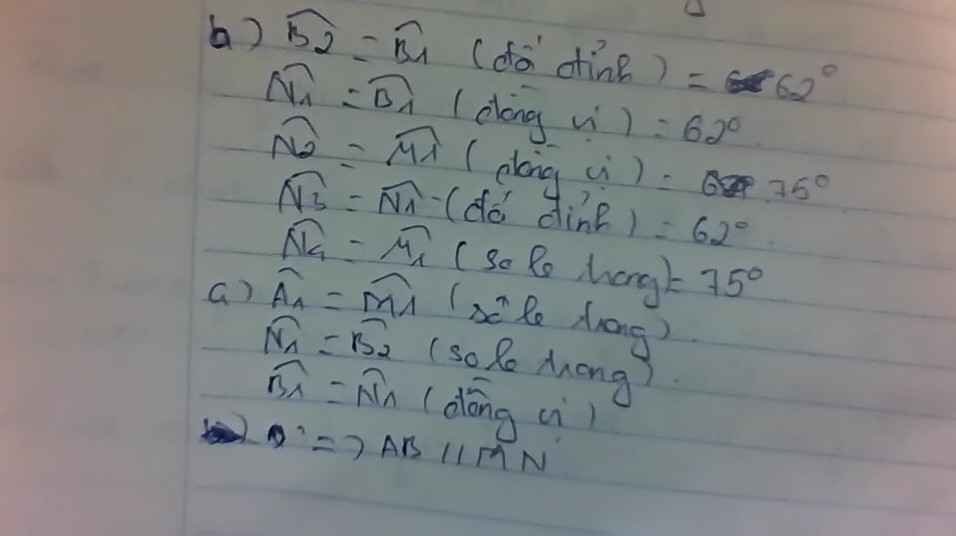 b) B̂2 = B̂1 (đố đỉnh) = 62°
N̂1 = B̂1 (đồng vị) = 62°
N̂2 = M̂1 (đồng vị) = 75°
N̂3 = N̂1 (đố đỉnh) = 62°
N̂4 = M̂1 (so le trong) = 75°
a) Â1 = M̂1 (sô le trong)
N̂1 = B̂2 (so le trong)
B̂1 = N̂1 (đồng vị)
=> AB // MN